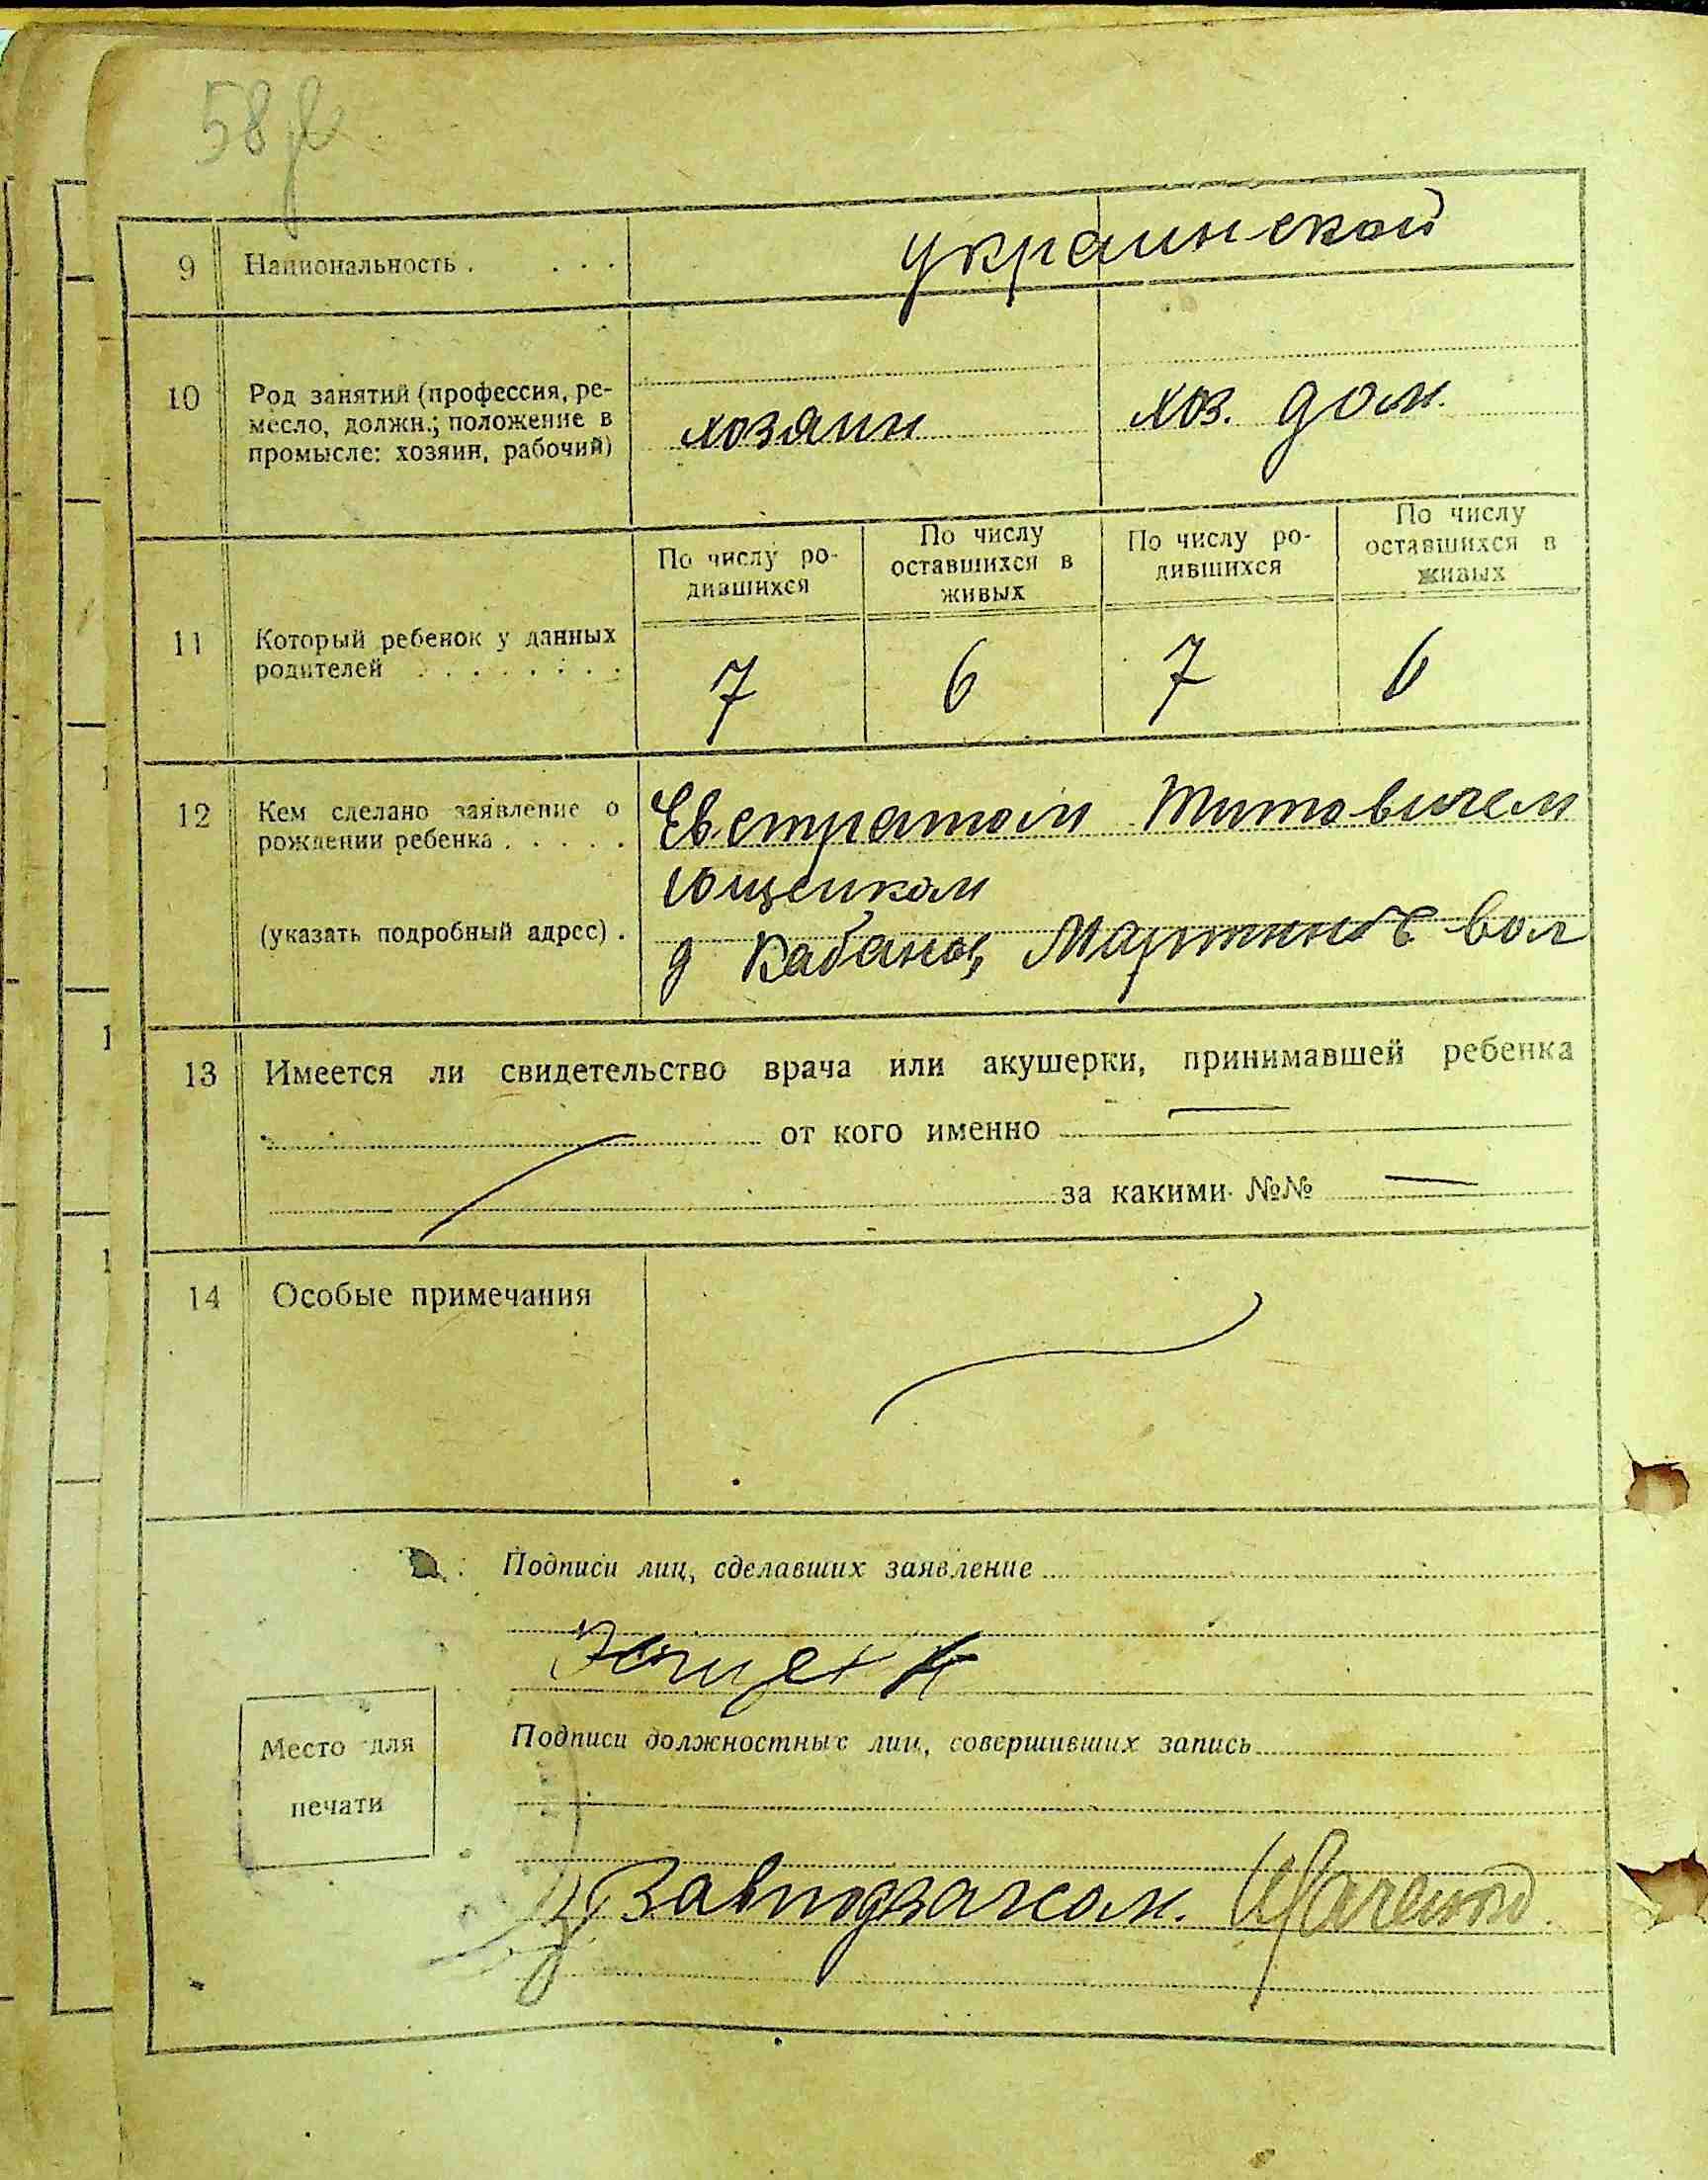 58
9 Национальность . . . . украинской
10 Род занятий (профессия, ре-
месло, должн.; положение в
промысле: хозяин, рабочий)
хозяин хоз. дом.
По числу ро-
дившихся
По числу
оставшихся в
живых
По числу ро-
дившихся
По числу
оставшихся в
живых
11 Который ребенок у данных
родителей . . . . . . . .
7 6 7 6
12 Кем сделано заявление о
рождении ребенка . . . . .
(указать подробный адрес) .
Евстратом Титовичем
Ющенком
д Кабаны, вол
13 Имеется ли свидетельство врача или акушерки, принимавшей ребенка
от кого именно —
за какими №№ —
14 Особые примечания
Подписи лиц, сделавших заявление
Подписи должностных лиц, совершивших запись
Место для
печати
Завподзагсом.